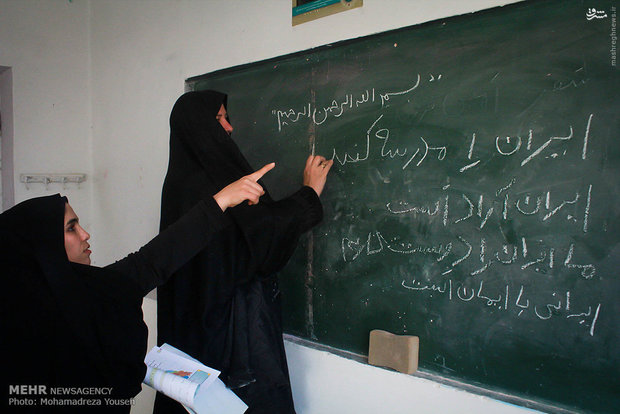 مشرق
mashreghnews.ir
"بسم الله الرحمن الرحیم"
ایران را مدرسه کنید
ایران آزاد است
ما ایران را دوست داریم
ایرانی با ایمان است
MEHR NEWSAGENCY
Photo: Mohamadreza Youseh